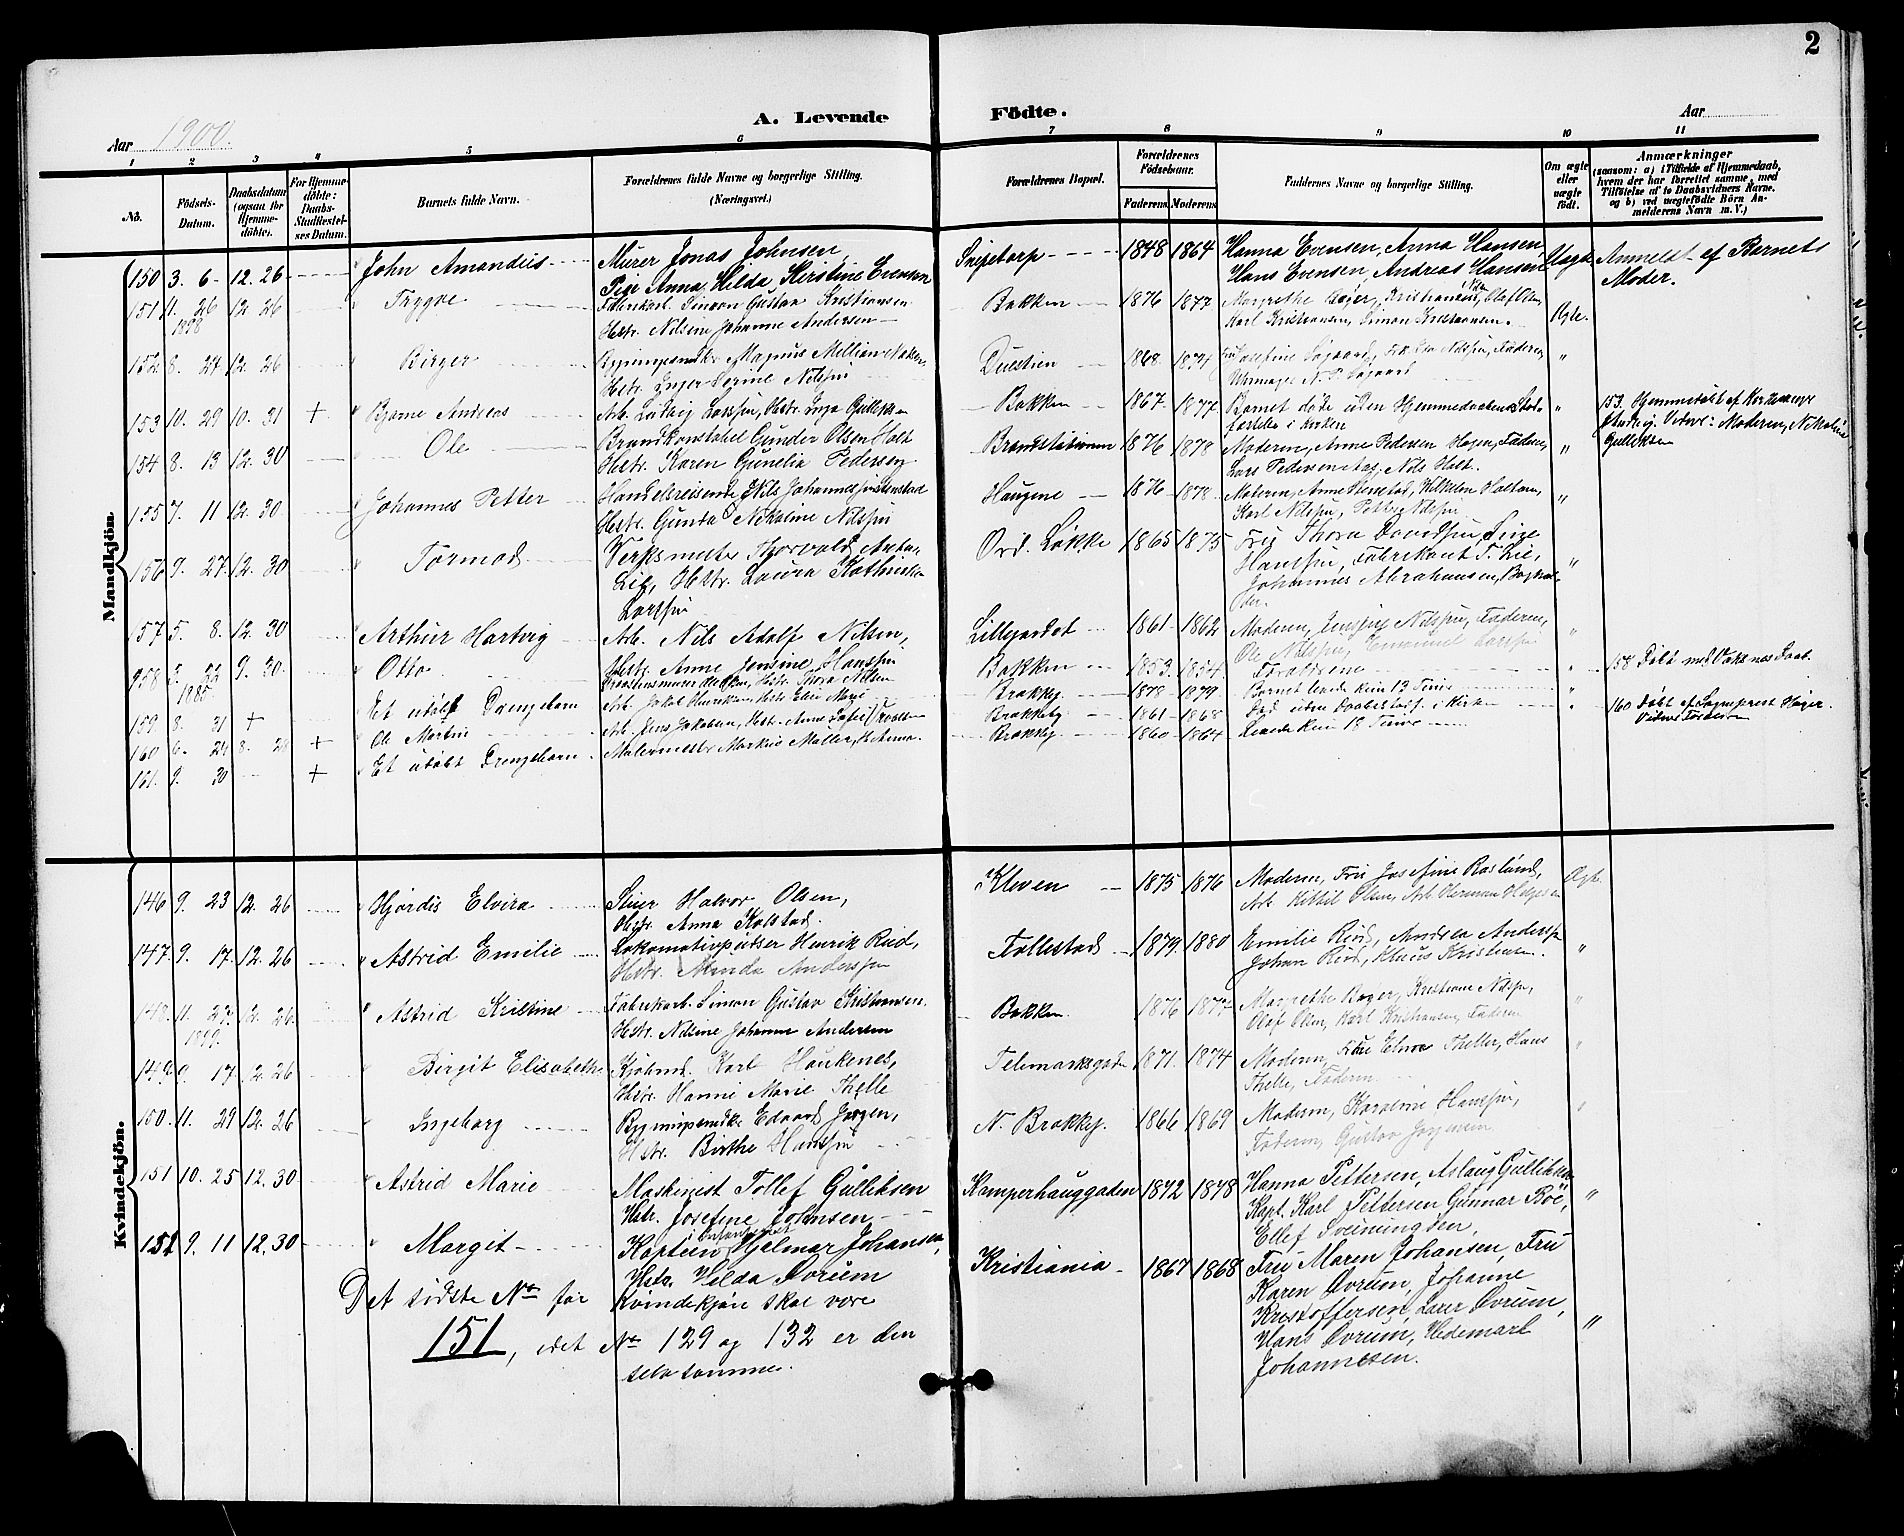 2
A. Levende Födte.
Aar 1900.
Aar
1 2 3 4 5 6 7 8 9 10 11
No. Födsels-Datum. Daabsdatum (ogsaa for Hjemmedöbte). For Hjemmedöbte: Daabs-Stadfæstelses Datum. Barnets fulde Navn. Forældrenes fulde Navne og borgerlige Stilling. (Næringsvei.)
Forældrenes Bopæl. Forældrenes Födselsaar. Faderens. Moderens. Faddernes Navne og borgerlige Stilling. Om ægte eller uægte födt. Anmærkninger (saasom: a) i Tilfælde af Hjemmedaab, hvem der har forrettet samme, med Tilföielse af to Daabsvidners Navne, og b) ved uægtefödte Börn Anmelderens Navn m. V.)
Mandkjön.
150 3. 6 12. 26 John Amandus Murer Jonas Johnsen, Snipetorp 1848 1864 Hanna Evensen, Anna Hansen Uægte Anmeldt af Barnets
Pige Anna Hilda Kirstine Evensen Hans Evensen, Andreas Hansen Moder.
151 11. 26 12. 26 Trygve Fabrikarb. Simon Gustav Kristiansen Bakken 1876 1877 Margrethe Bøjer, Kristiane Nilsen, Olaf Olsen,
1898 Hstr. Nilsine Johanne Andersen Karl Kristiansen, Simon Kristiansen. Ægte.
152 8. 24 12. 26 Birger Duestien 1868 1874 Josefine Søgaard,
Hstr. Inger Sorine Nilssen Uhrmager N. P. Søgaard
153 10. 29 10. 31 + Bjarne Andreas Arb. Ludvig Larssen, Hstr. Inga Gulliksen Bakken 1867 1877 Barnet døde uden Hjemmedaabens Stadfæstelse i Kirken " 153. Hjemmedøbt af Kirkesanger
Vidner: Moderen, N. Mathea Gulliksen
154 8. 13 12. 30 Ole Brandkonstabel Gunder Olsen Holt Brandstationen 1876 1878 Moderen, Anne Pedersen Hagen, Faderen, "
Hstr. Karen Gunelia Pedersen Lars Pedersen Aas, Nils Holt.
155 7. 11 12. 30 Johannes Petter Handelsreisende Nils Johannessen Haugene 1876 1878 Moderen, Anne Henstad, Vilhelm "
Hstr. Gunda Nikoline Nilssen Karl Nilssen, Petter Nilssen
156 9. 27 12. 30 Tormod Verksmester Thorvald Anton Ovd. Løkke 1865 1875 Fru Thora Davidsen, Line
Lie, Hstr. Laura Kathinka Hanssen, Fabrikant T. Lie, "
Larssen Johannes Abrahamsen, Baghol-
der.
157 5. 8. 12. 30 Arthur Hartvig Arb. Nils Adolf Nilsen, Lillegaardet 1861 1862 Moderen, Nilssen, Faderen,
Hstr. Anne Jensine Hanssen Ole Nilssen, Emmanuel Larssen "
158 5. 22 9. 30. Otto Bakken 1853 1854 Forældrene " 158 Døbt med Voksnes Daab.
1885
159. 8. 31 + Et udøbt Drengebarn Arb. Jakob Henriksen, Hstr. Elise Marie Brekkeby 1878 1879 Barnet levede kun 13 Timer "
160 6. 24 8. 28 + Ole Martin Arb. Jens Jakobsen, Hstr. Anne Sofie Brekkeby 1861 1868 Død uden Daabstadf. i Kirken " 160 Døbt af Sogneprest Høyer.
161. 9. 30 + Et udøbt Drengebarn Malermester Markus Møller, H. Anna Brekkeby 1860 1864 Levede kun 18 Timer
Kvindekjön.
146 9. 23 12. 26 Hjørdis Elvira Halvor Olsen, Kleven 1875 1876 Moderen, Fru Josefine Roslund, Ægte.
Hstr. Anna Kolstad. Arb. Kittil Olsen, Arb. Herman Helgesen
147. 9. 17 12. 26 Astrid Emilie Lokomotivpudser Henrik Riid, Follestad 1879 1880 Emilie Riid, Andrea Anderssen "
Hstr. Minda Anderssen Johan Riid, Klaus Kristensen.
148. 11. 27. 12. 26 Astrid Kristine Fabrikarb. Simon Gustav Kristiansen Bakken 1876 1877 Margrethe Bøjer, Kristiane Nilsen, "
1899. Hstr. Nilsine Johanne Andersen Olaf Olsen, Karl Kristiansen, Faderen
149 9. 17 12. 26 Birgit Elisabeth Kjøbmd. Karl Haukenes, Telemarksgaden 1871 1874 Moderen, Frk. Thelle, Hans "
Hstr. Hanne Marie Thelle Thelle, Faderen
150. 11. 29 12. 26 Ingeborg Bygningssnedker Edvard Jørgensen, N. Brekkeby. 1866 1869 Moderen, Karoline Hanssen, "
Hstr. Birthe Hanssen Faderen, Gustav Jørgensen
151 10. 25 12. 30 Astrid Marie Maskinist Tollef Gulliksen Kamperhauggaden 1842 1848 Hanna Pettersen, Aslaug Gulliksen "
Hstr. Josefine Johnsen Kapt. Karl Pettersen Gunnar Böe,
Ellef Sveinungsen,
152 9. 11 12. 30 Margit Kaptein i Infanteriet Hjalmar Johansen, Kristiania 1867 1868 Fru Maren Johansen, Fru
Hstr. Hilda Øvrum Karen Øvrum, Johanne
Kristoffersen, Laver Øvrum,
Hans Øvrum, Hedemark "
Johannesen.
Det sidste No for Kvindekjøn skal være
151, idet No 129 og 132 er den
selvsamme.